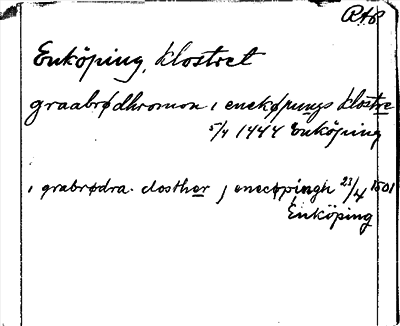 RAP
Enköping, klostret
graabrødhromon i enekøpungs klostre
5/4 1444 Enköping
i grabrødra closther j enecøpingh 23/4 1501
Enköping